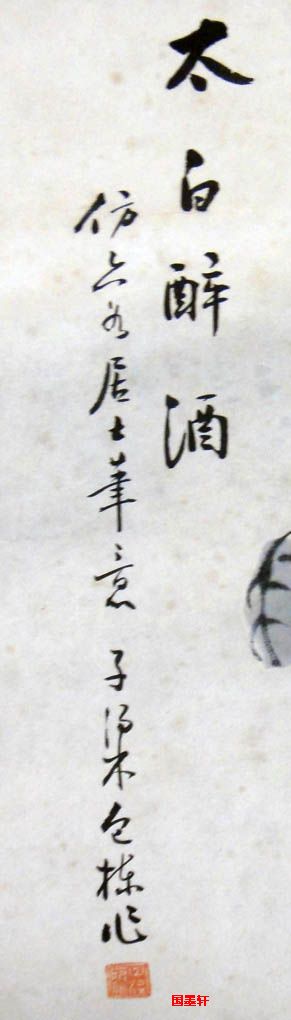 太白醉酒
仿六如居士筆意 子梁包棟作
国墨轩